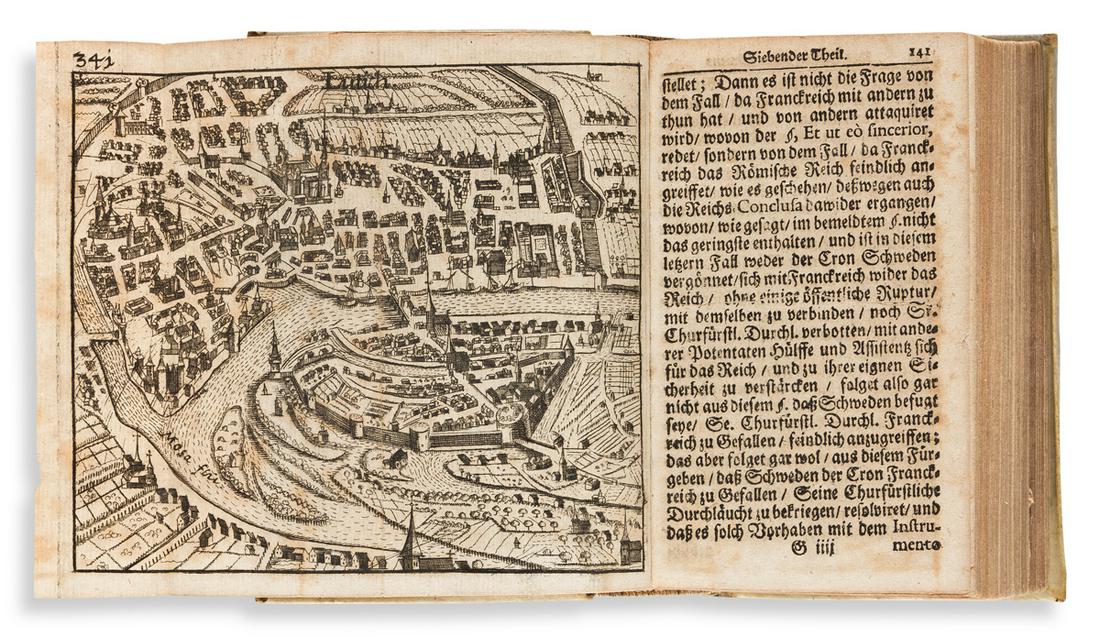 341
Lutich
Mosa fluv
Siebender Theil. 141
stellet; Dann es ist nicht die Frage von
dem Fall / da Franckreich mit andern zu
thun hat / und von andern attaquiret
wird / wovon der §. Et ut eò sincerior,
redet / sondern von dem Fall / da Franck-
reich das Römische Reich feindlich an-
greiffet / wie es geschehen / deßwegen auch
die Reichs-Conclusa dawider ergangen /
wovon / wie gesagt / im bemeldtem §. nicht
das geringste enthalten / und ist in diesem
letzern Fall weder der Cron Schweden
vergönnet / sich mit Franckreich wider das
Reich / ohne einige öffentliche Ruptur /
mit demselben zu verbinden / noch Sr.
Churfürstl. Durchl. verbotten / mit ande-
rer Potentaten Hülffe und Assistentz sich
für das Reich / und zu ihrer eignen Si-
cherheit zu verstärcken / folget also gar
nicht aus diesem §. daß Schweden befugt
seye / Se. Churfürstl. Durchl. Franck-
reich zu Gefallen / feindlich anzugreiffen;
das aber folget gar wol / aus diesem Für-
geben / daß Schweden der Cron Franck-
reich zu Gefallen / Seine Churfürstliche
Durchläucht zu bekriegen / resolviret / und
daß es solch Vorhaben mit dem Instru-
G iiij mento